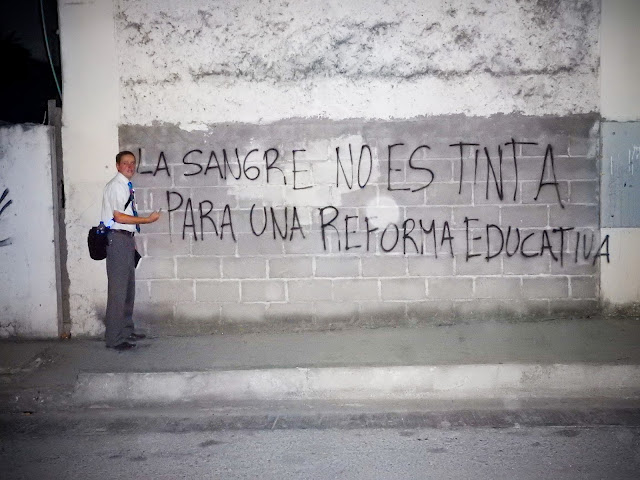 LA SANGRE NO ES TINTA
PARA UNA REFORMA EDUCATIVA